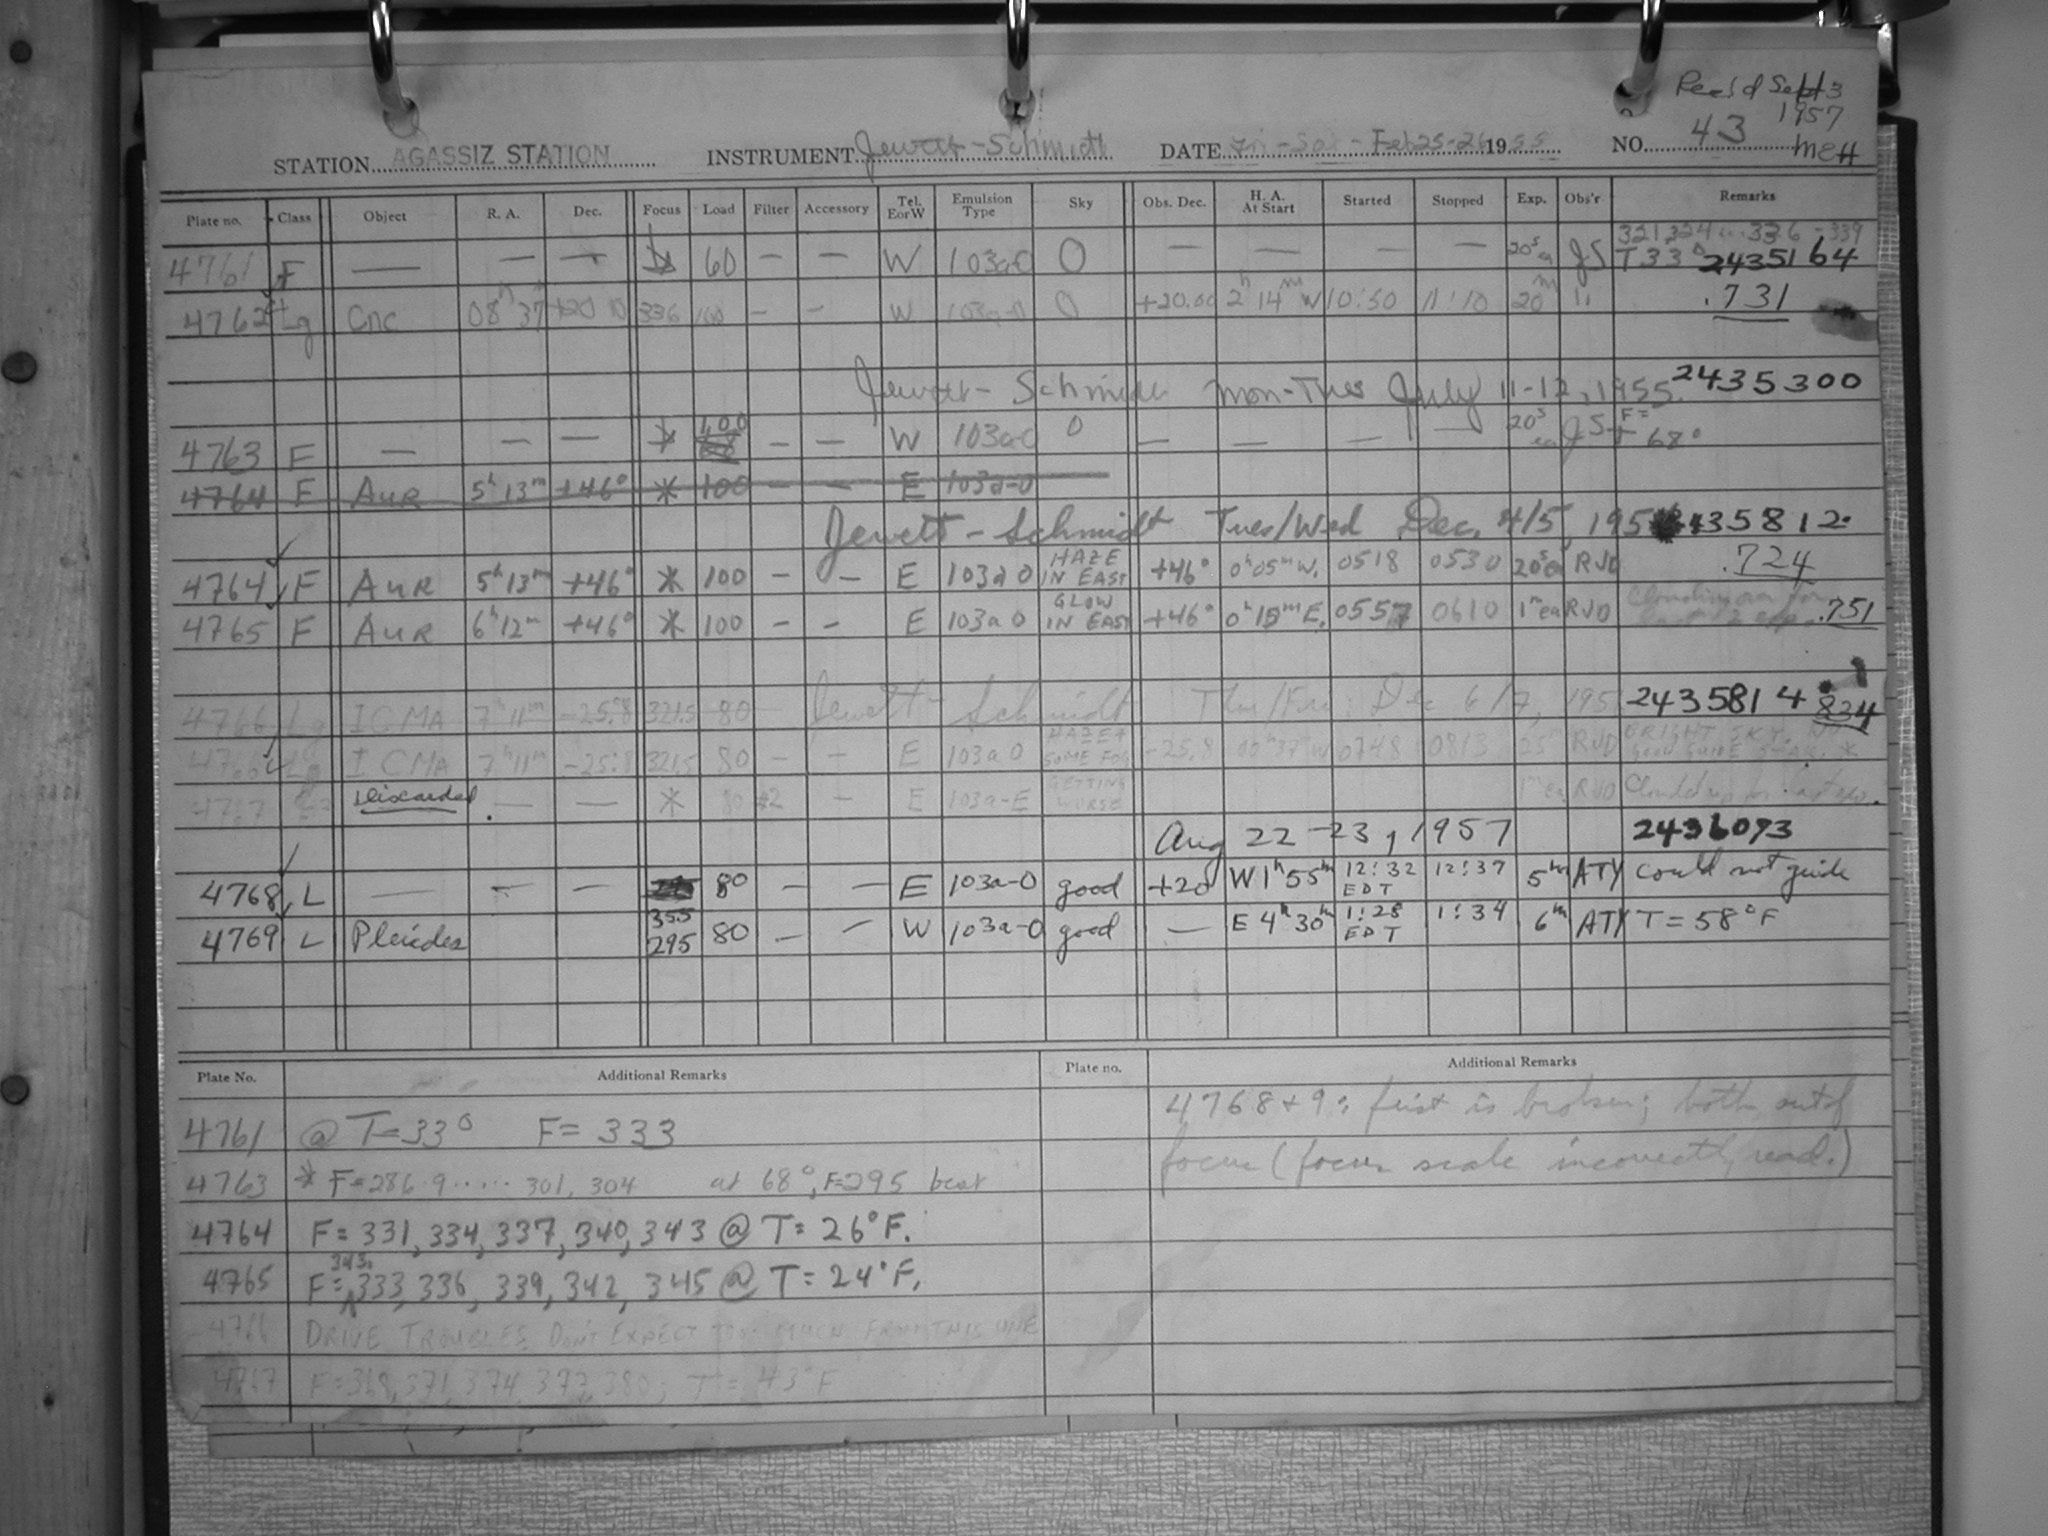 Rec'd Sept 3
1957
MEH
STATION AGASSIZ STATION INSTRUMENT Jewett-Schmidt DATE Fri-Sat - Feb 25-26 1955 NO. 43
Plate no. Class Object R. A. Dec. Focus Load Filter Accessory Tel. E or W Emulsion Type Sky Obs. Dec. H. A. At Start Started Stopped Exp. Obs'r Remarks
321, 324 ... 336 - 339
4761 F — — — 60 — — W 103aO O — — — — 20s ea JS T33° 2435164
4762 Lg Cnc 08h 37 +20 10 336 100 — — W 103a-O O +20.00 2h 14m W 10:50 11:10 20m " .731
Jewett-Schmidt Mon-Tues July 11-12, 1955. 2435300
4763 F — — — 100 — — W 103aO O — — — — 20s ea JS F= T 68°
4764 F AUR 5h 13m +46° * 100 — — E 103a-O
Jewett-Schmidt Tues/Wed Dec. 4/5, 195 2435812.
4764 F AUR 5h 13m +46° * 100 — — E 103a O HAZE IN EAST +46° 0h 05m W. 0518 0530 20s ea RJD .724
4765 F AUR 6h 12m +46° * 100 — — E 103a O GLOW IN EAST +46° 0h 15m E. 0557 0610 1m ea RJD .751
4766 Lg I CMA 7h 11m -25.8 321.5 80 Jewett-Schmidt Thu/Fri: Dec 6/7, 195 2435814.834
4766 Lg I CMA 7h 11m -25.8 321.5 80 — — E 103a O HAZE + SOME FOG -25.8 00h 37m W 0748 0813 25m RJD BRIGHT SKY. NO GOOD GUIDE STAR. *
4767 Discarded — — * 80 #2 — E 103a-E GETTING WORSE 1m ea RJD Clouded up for last exp.
Aug 22-23, 1957 2436093
4768 L — — — 80 — — E 103a-O good +20 W 1h 55m 12:32 EDT 12:37 5m ATY could not guide
4769 L Pleiades 355 295 80 — — W 103a-O good — E 4h 30m 1:28 EDT 1:34 6m ATY T = 58°F
Plate No. Additional Remarks Plate no. Additional Remarks
4761 @ T=33° F= 333
4763 * F=286.9 ..... 301, 304 at 68°, F=295 best
4764 F= 331, 334, 337, 340, 343 @ T= 26°F.
4765 F= 343, 333, 336, 339, 342, 345 @ T= 24°F.
4766 DRIVE TROUBLES. DON'T EXPECT TOO MUCH FROM THIS ONE
4767 F=368, 371, 374, 377, 380; T= 43°F
4768+9: first is broken; both out of
focus (focus scale incorrectly read.)